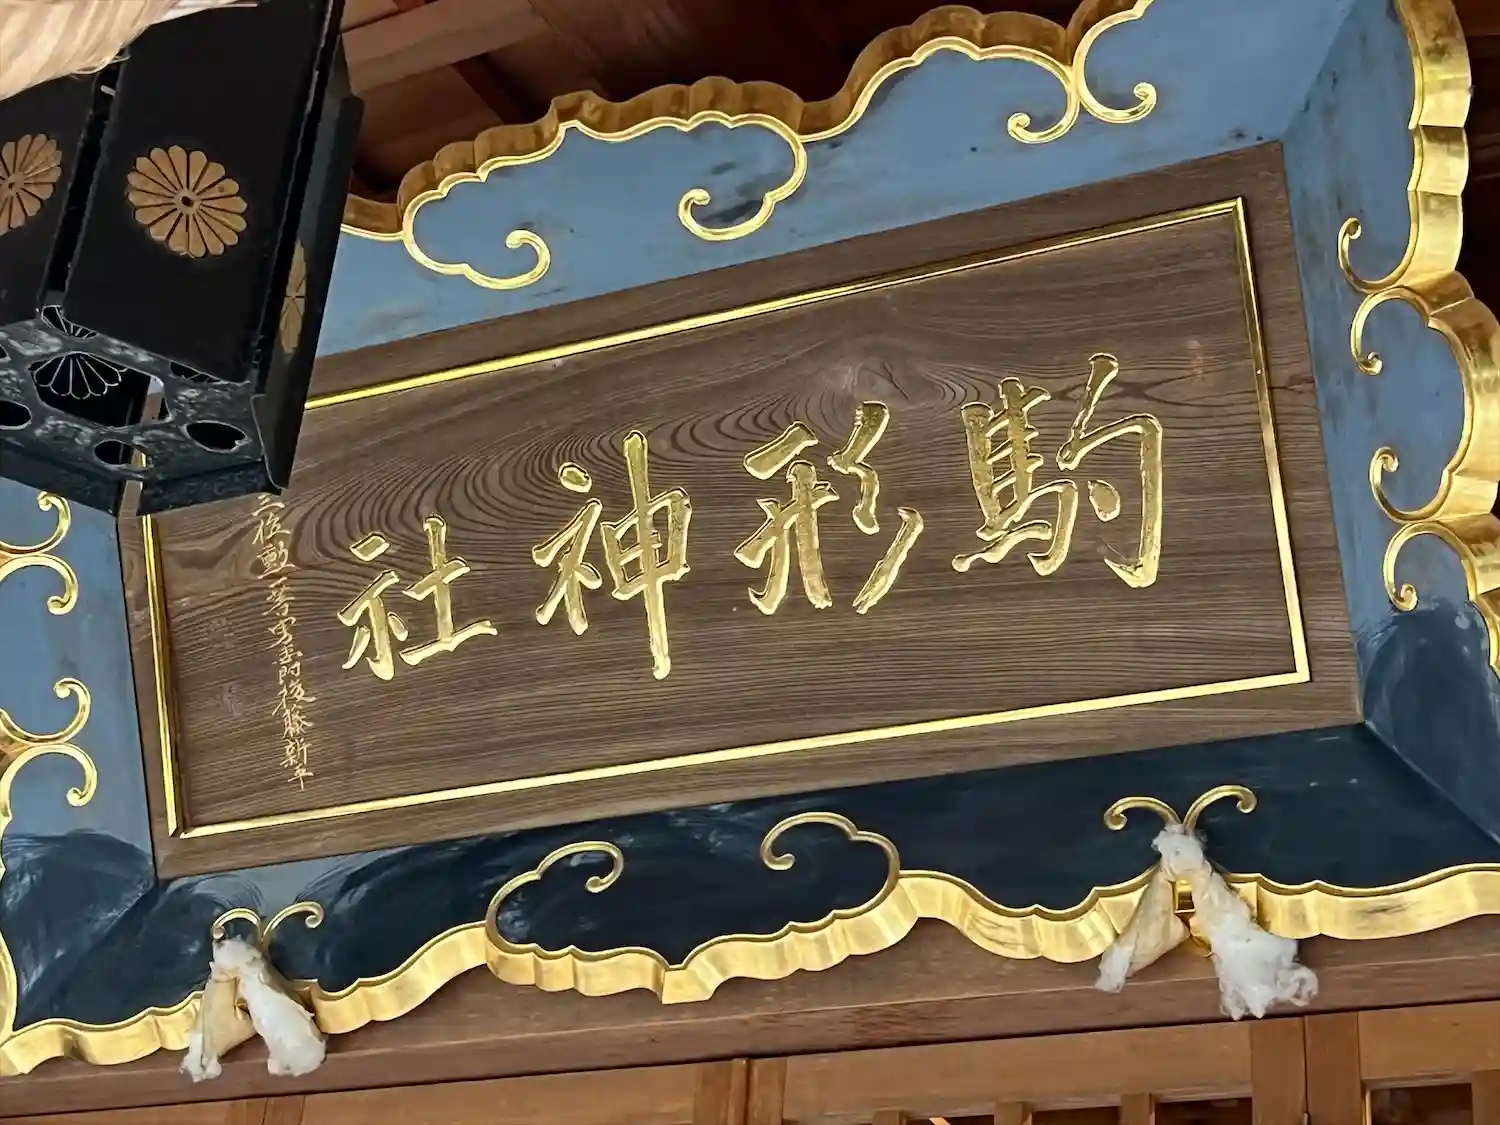 駒形神社
三位勲一等男爵後藤新平